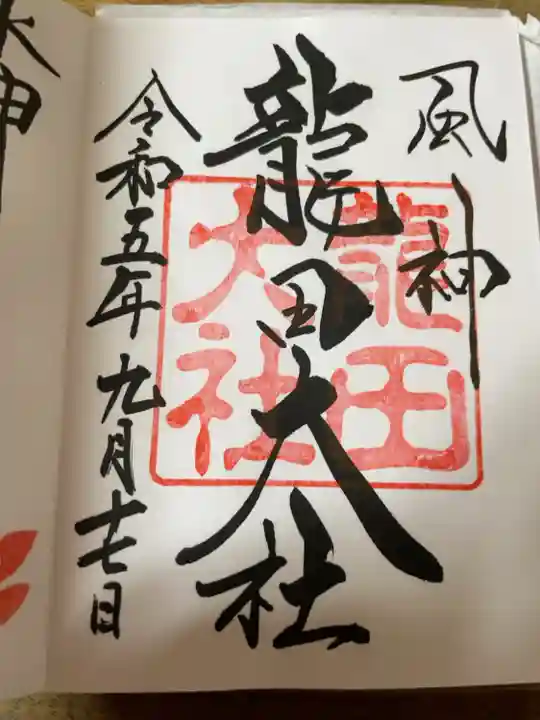 風神
龍田大社
龍田
大社
令和五年九月十七日